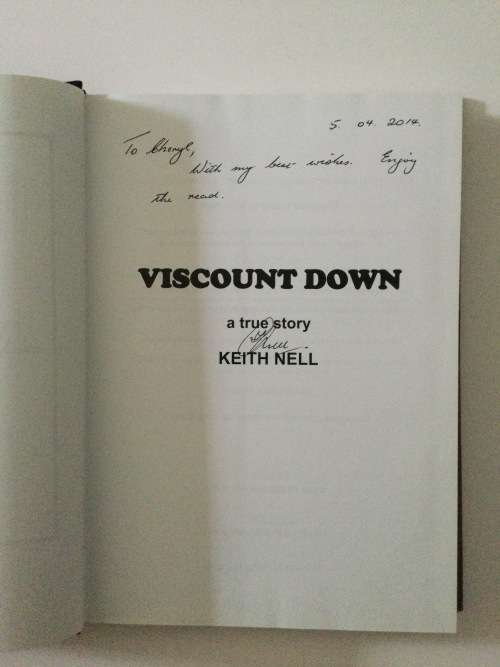 5. 04. 2014.
To Cheryl,
With my best wishes. Enjoy
the read.
VISCOUNT DOWN
a true story
KNell.
KEITH NELL